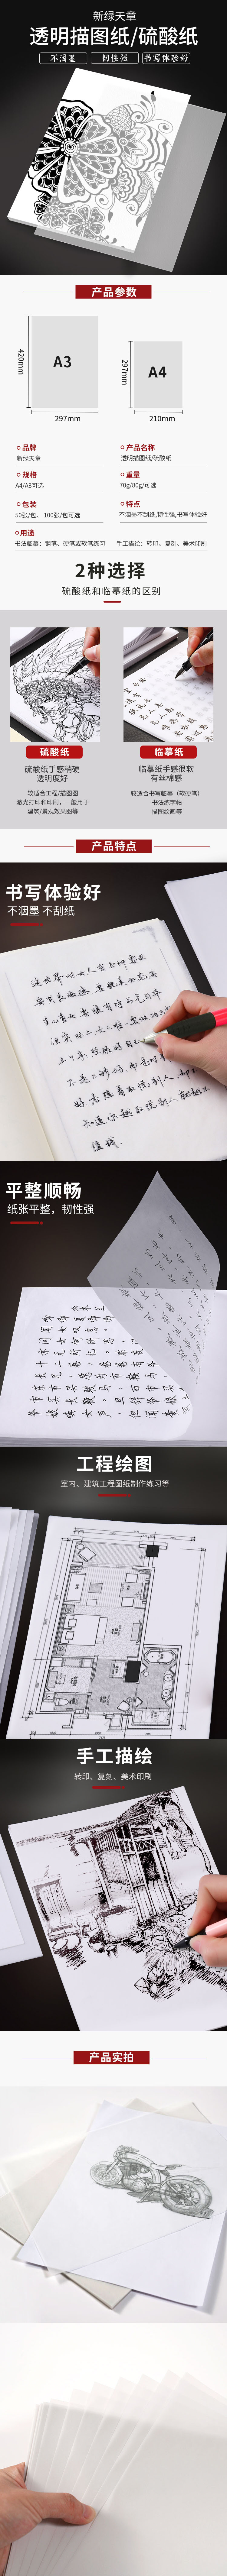 新绿天章
透明描图纸/硫酸纸
不洇墨 韧性强 书写体验好
产品参数
420mm
A3
297mm
297mm
A4
210mm
品牌
新绿天章
产品名称
透明描图纸/硫酸纸
规格
A4/A3可选
重量
70g/80g/可选
包装
50张/包、100张/包可选
特点
不洇墨不刮纸,韧性强,书写体验好
用途
书法临摹：钢笔、硬笔或软笔练习 手工描绘：转印、复刻、美术印刷
2种选择
硫酸纸和临摹纸的区别
硫酸纸
硫酸纸手感稍硬
透明度好
较适合工程/描图图
激光打印和印刷，一般用于
建筑/景观效果图等
临摹纸
临摹纸手感很软
有丝棉感
较适合书写临摹（软硬笔）
书法练字帖
描图绘画等
产品特点
书写体验好
不洇墨 不刮纸
平整顺畅
纸张平整，韧性强
工程绘图
室内、建筑工程图纸制作练习等
手工描绘
转印、复刻、美术印刷
产品实拍